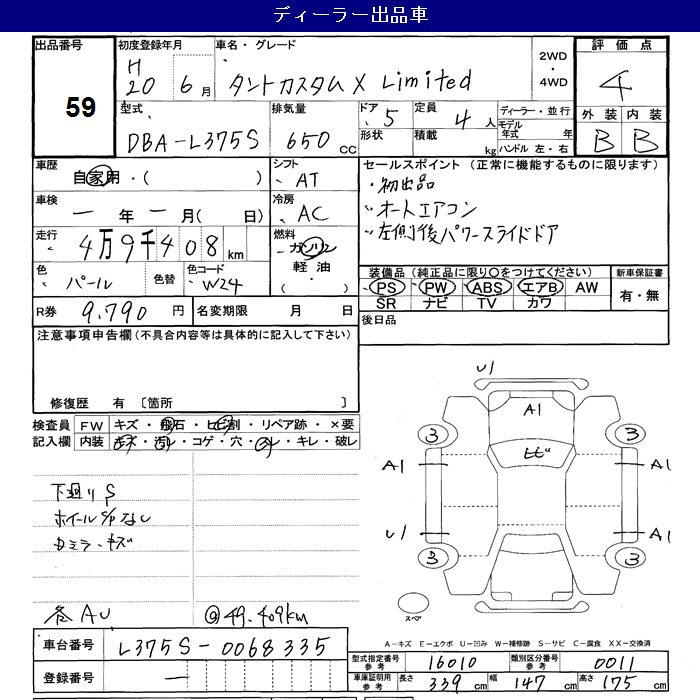 ディーラー出品車
出品番号 初度登録年月 車名・グレード 2WD・4WD 評価点
59 H20 6月 タントカスタム X Limited 4
型式 排気量 ドア 定員 ディーラー・並行 外装 内装
DBA-L375S 650cc 5 4人 モデル年式 年 B B
形状 積載 kg ハンドル 左・右
車歴 自家用・( ) シフト AT セールスポイント (正常に機能するものに限ります)
・初出品
車検 一年一月( 日) 冷房 AC オートエアコン
左側後パワースライドドア
走行 4万9千408km 燃料 ガソリン 軽油・( )
色 パール 色替 色コード W24
装備品(純正品に限り○をつけてください) 新車保証書
PS PW ABS エアB AW 有・無
SR ナビ TV カワ
R券 9,790円 名変期限 月 日 後日品
注意事項申告欄(不具合内容等は具体的に記入して下さい)
修復歴 有 〔箇所 〕
検査員 FW キズ・飛石・ヒビ割・リペア跡・×要
記入欄 内装 キズ・汚レ・コゲ・穴・キレ・破レ
下廻りS
ホイールS/Pなし
カミラーキズ
各AU @49.409km
U1
A1
3 ヒビ 3
A1 A1
U1 A1
3 3
スペア
A-キズ E-エクボ U-凹み W-補修跡 S-サビ C-腐食 XX-交換済
車台番号 L375S-0068335
型式指定番号 参考 16010 類別区分番号 参考 0011
登録番号 一
車庫証明用 参考 長さ 339cm 幅 147cm 高さ 175cm